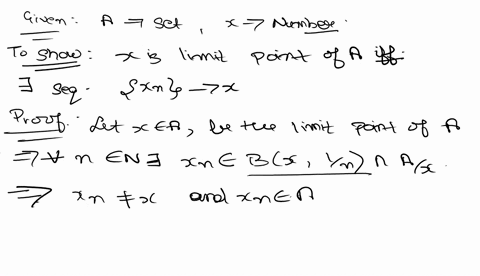 Given: A → set, x → Number.
To show: x is limit point of A iff
∃ seq. {xn} → x
Proof: Let x∈A, be the limit point of A
⇒ ∀ n ∈ N ∃ xn ∈ B(x, 1/n) ∩ A/x.
⇒ xn ≠ x and xn ∈ A